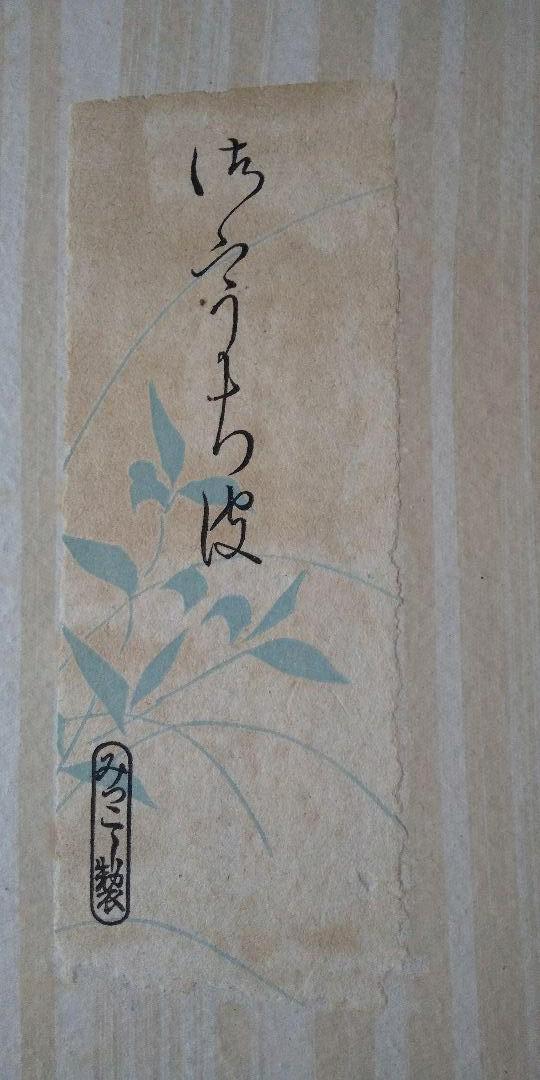 御うち波
みつこし製